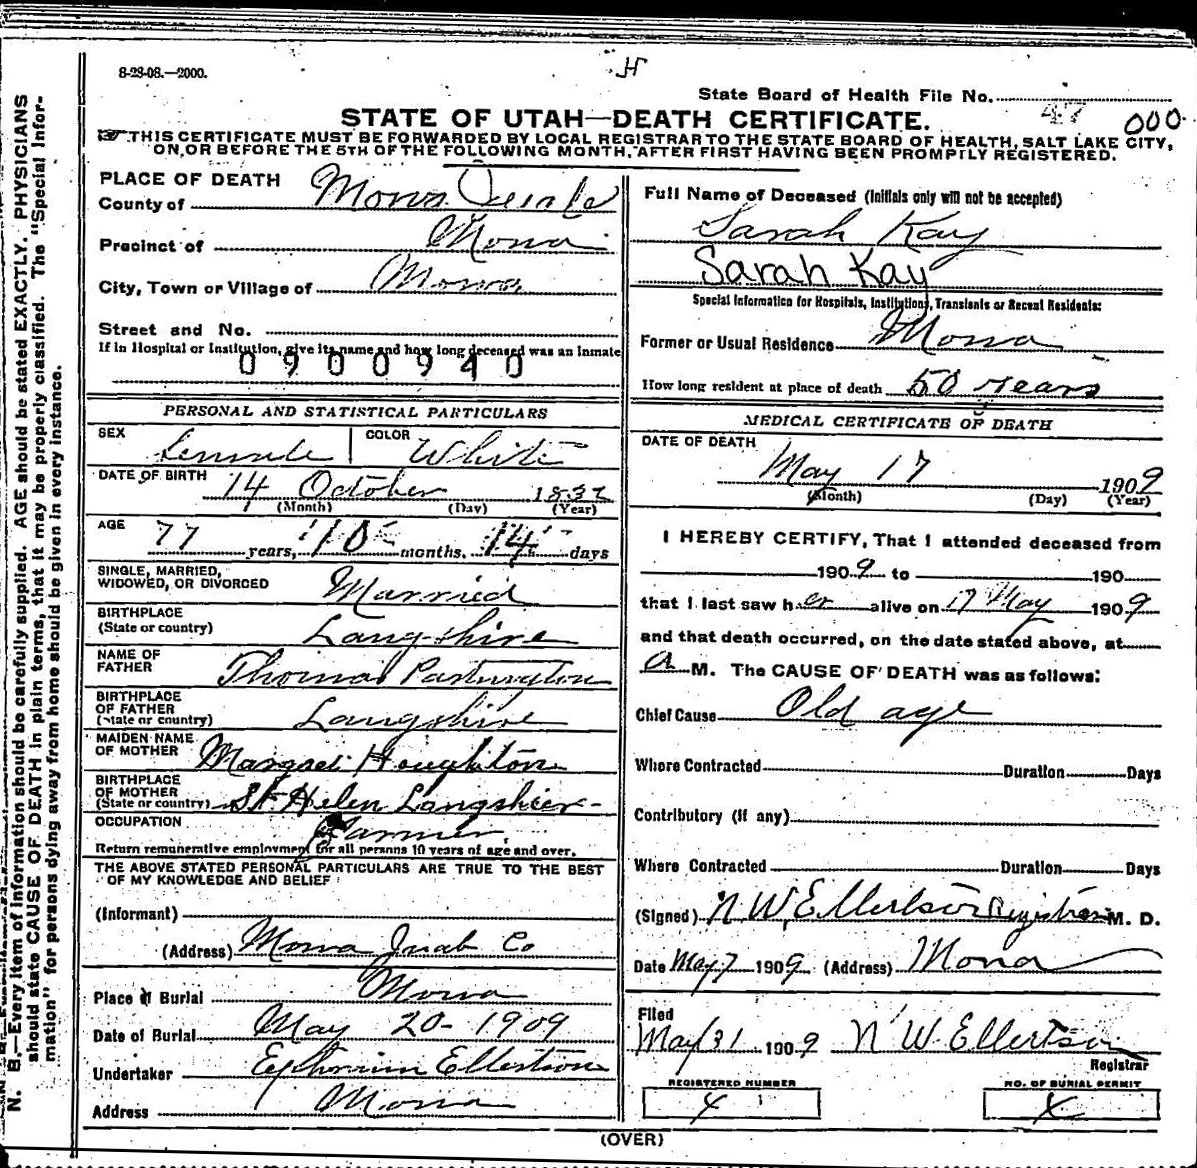 8-28-08.—2000.
H
State Board of Health File No. 47 000
STATE OF UTAH—DEATH CERTIFICATE.
THIS CERTIFICATE MUST BE FORWARDED BY LOCAL REGISTRAR TO THE STATE BOARD OF HEALTH, SALT LAKE CITY,
ON, OR BEFORE THE 5TH OF THE FOLLOWING MONTH, AFTER FIRST HAVING BEEN PROMPTLY REGISTERED.
N. B.—Every item of information should be carefully supplied. AGE should be stated EXACTLY. PHYSICIANS
should state CAUSE OF DEATH in plain terms, that it may be properly classified. The "Special Infor-
mation" for persons dying away from home should be given in every instance.
PLACE OF DEATH
County of Mona
Precinct of Mona
City, Town or Village of Mona
Street and No.
If in Hospital or Institution, give its name and how long deceased was an inmate
0900940
PERSONAL AND STATISTICAL PARTICULARS
SEX Female COLOR White
DATE OF BIRTH 14 October 1832
(Month) (Day) (Year)
AGE 77 years, 10 months, 14 days
SINGLE, MARRIED,
WIDOWED, OR DIVORCED Married
BIRTHPLACE
(State or country) Langshire
NAME OF
FATHER Thomas Partington
BIRTHPLACE
OF FATHER
(State or country) Langshire
MAIDEN NAME
OF MOTHER Margret Houghton
BIRTHPLACE
OF MOTHER
(State or country) St Helen Langshier
OCCUPATION Farmer
Return remunerative employment for all persons 10 years of age and over.
THE ABOVE STATED PERSONAL PARTICULARS ARE TRUE TO THE BEST
OF MY KNOWLEDGE AND BELIEF
(Informant)
(Address) Mona Juab Co
Place of Burial Mona
Date of Burial May 20-1909
Undertaker Ellertson
Address Mona
Full Name of Deceased (Initials only will not be accepted)
Sarah Kay
Sarah Kay
Special Information for Hospitals, Institutions, Transients or Recent Residents:
Former or Usual Residence Mona
How long resident at place of death 50 years
MEDICAL CERTIFICATE OF DEATH
DATE OF DEATH
May 17 1909
(Month) (Day) (Year)
I HEREBY CERTIFY, That I attended deceased from
1909 to 190
that I last saw her alive on 17 May 1909
and that death occurred, on the date stated above, at
a M. The CAUSE OF DEATH was as follows:
Chief Cause Old age
Where Contracted Duration Days
Contributory (if any)
Where Contracted Duration Days
(Signed) N W Ellertson Registrar M. D.
Date May 7 1909 (Address) Mona
Filed
May 31 1909 N W Ellertson
Registrar
REGISTERED NUMBER NO. OF BURIAL PERMIT
4
(OVER)